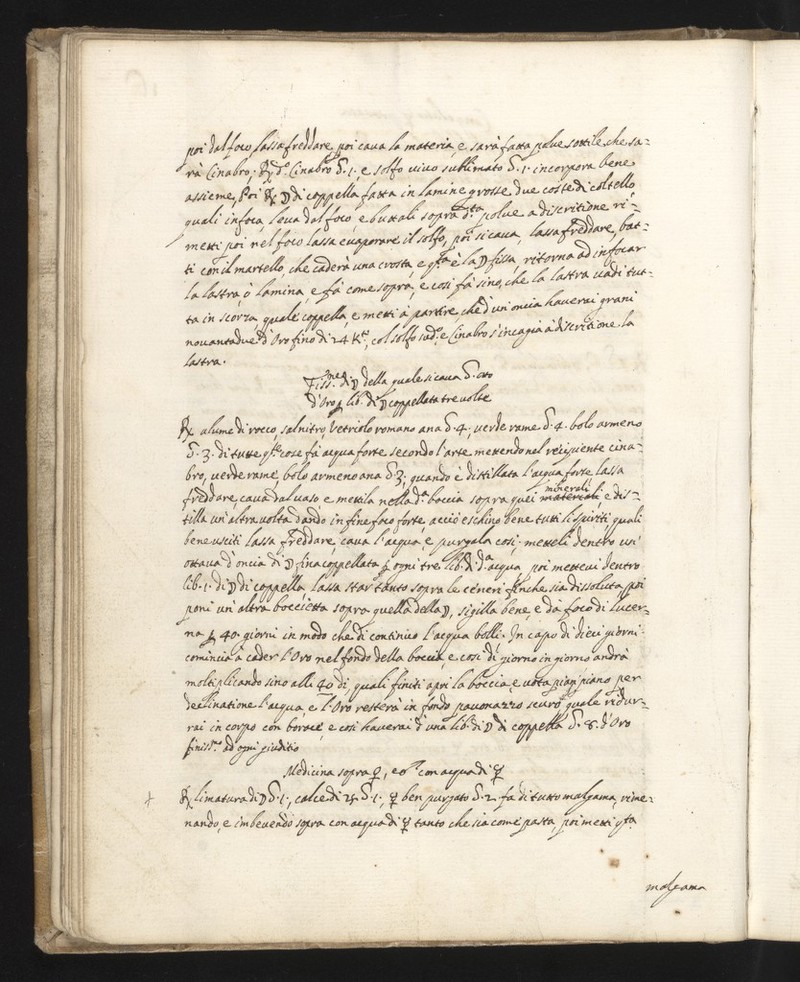 poi dal foco lassa freddare, poi cava la materia, e sarà fatta polve sottile, che sa=
rà Cinabro; ℞ d.º Cinabro ℥. 1. e solfo vivo sublimato ℥. 1. incorpora bene
assieme, Poi ℞ ☽ di coppella fatta in lamine grosse due coste di coltello,
quali infoca, leva dal foco, e buttali sopra d.ta polve a discritione ri=
metti poi nel foco lassa evaporare il solfo, poi si cava, lassa freddare, bat=
ti con il martello, che caderà una crosta, e q.sta è la ☽ fissa, ritorna ad infocar
la lastra, ò lamina, e fà come sopra, e così fà sino, che la lastra vadi tut=
ta in scorza quale coppella, e metti à partire, che d'un'oncia haverai grani
novantadue d'Oro fino di 24 K.ti, col solfo sud.º e Cinabro s'incagia à discritione la
lastra.
Fiss.ne di ☽ della quale si cava ℥. otto
d'Oro ꝑ lib.ª di ☽ coppellata tre volte
℞ alume di rocco, salnitro, Vetriolo romano ana ℥. 4., verderame ℥. 4. bolo armeno
℥. 3. di tutte q.ste cose fà acqua forte secondo l'arte mettendo nel recipiente cina=
bro, verderame, bolo armeno ana ℥. 3; quando è distillata l'acqua forte lassa
freddare, cava dal vaso e mettila nella d.ª boccia sopra quei materiali minerali, e dis=
tilla un'altra volta dando in fine foco forte, acciò eschino bene tutti li spiriti, quali
bene usciti lassa freddare, cava l'acqua, e purgala così; metteli dentro un'
ottava d'oncia di ☽ fina coppellata ꝑ ogni tre lib. di d.ª acqua, poi mettevi dentro
lib. 1. di ☽ di coppella, lassa star tanto sopra le ceneri finche sia dissoluta, poi
poni un'altra boccietta sopra quella della ☽, sigilla bene, e da foco di lucer=
na ꝑ 40. giorni in modo che di continuo l'acqua bolli. In capo di dieci giorni
comincia à cader l'Oro nel fondo della boccia, e così di giorno in giorno andrà
moltiplicando sino alli 40 di, quali finiti apri la boccia, e vota pian piano per
declinatione l'acqua, e l'Oro resterà in fondo pavonazzo scuro, quale ridur=
rai in corpo con borace e così haverai d'una lib.ª di ☽ di coppella ℥. 8. d'Oro
finiss.º ad ogni giuditio
Medicina sopra ♀, e ♂ con acqua di ☿
℞ limatura di ☽ ℥. 1., calce di ♃ ℥. 1., ☿ ben purgato ℥. 2. fà di tutto malgama, rime=
nando, e imbevendo sopra con acqua di ☿ tanto che sia come pasta, poi metti q.sta
malgama